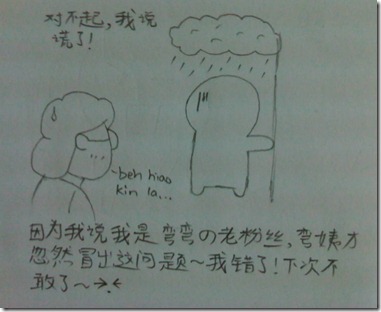 对不起,我说
谎了!
beh hiao
kin la...
因为我说我是弯弯の老粉丝,弯姨才
忽然冒出这问题~我错了!下次不
敢了~→.←